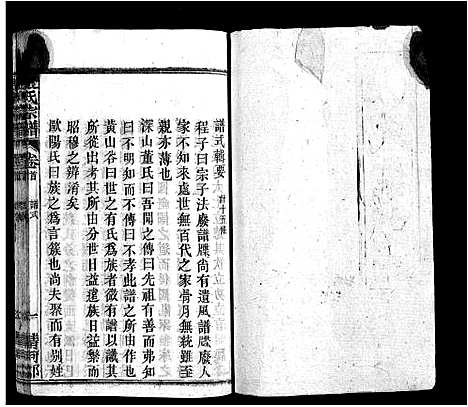 譜式輯要
程子曰宗子法廢譜牒尚有遺風譜牒廢人
家不知來處世無百代之家骨月無統雖至
親亦薄也
深山董氏曰吾聞之傳曰先祖有善而弗知
曰不明知而不傳曰不孝此譜之所由作也
黃山谷曰世之有氏為族者微有譜以識其
所從出考其所由分世旧益遠族旧益繁而
昭穆之辨淆矣
歐陽氏曰族之為言簇也尚夫聚而有別姓
氏宗譜
卷首
譜式
一
清河郡